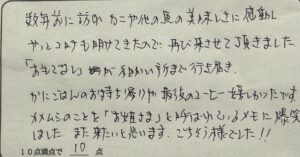 数年前に訪れ カニや他の魚の美味しさに感動し
やっとコロナも明けてきたので 再び来させて頂きました
「おもてなし」 細かい所まで行き届き
かにごはんのお持ち帰りや 最後のコーヒー 嬉しかったです
カメムシのことを「お姫さま」と呼ばれているメモに爆笑
しました また来たいと思います。ごちそう様でした!!
10点満点で 10 点